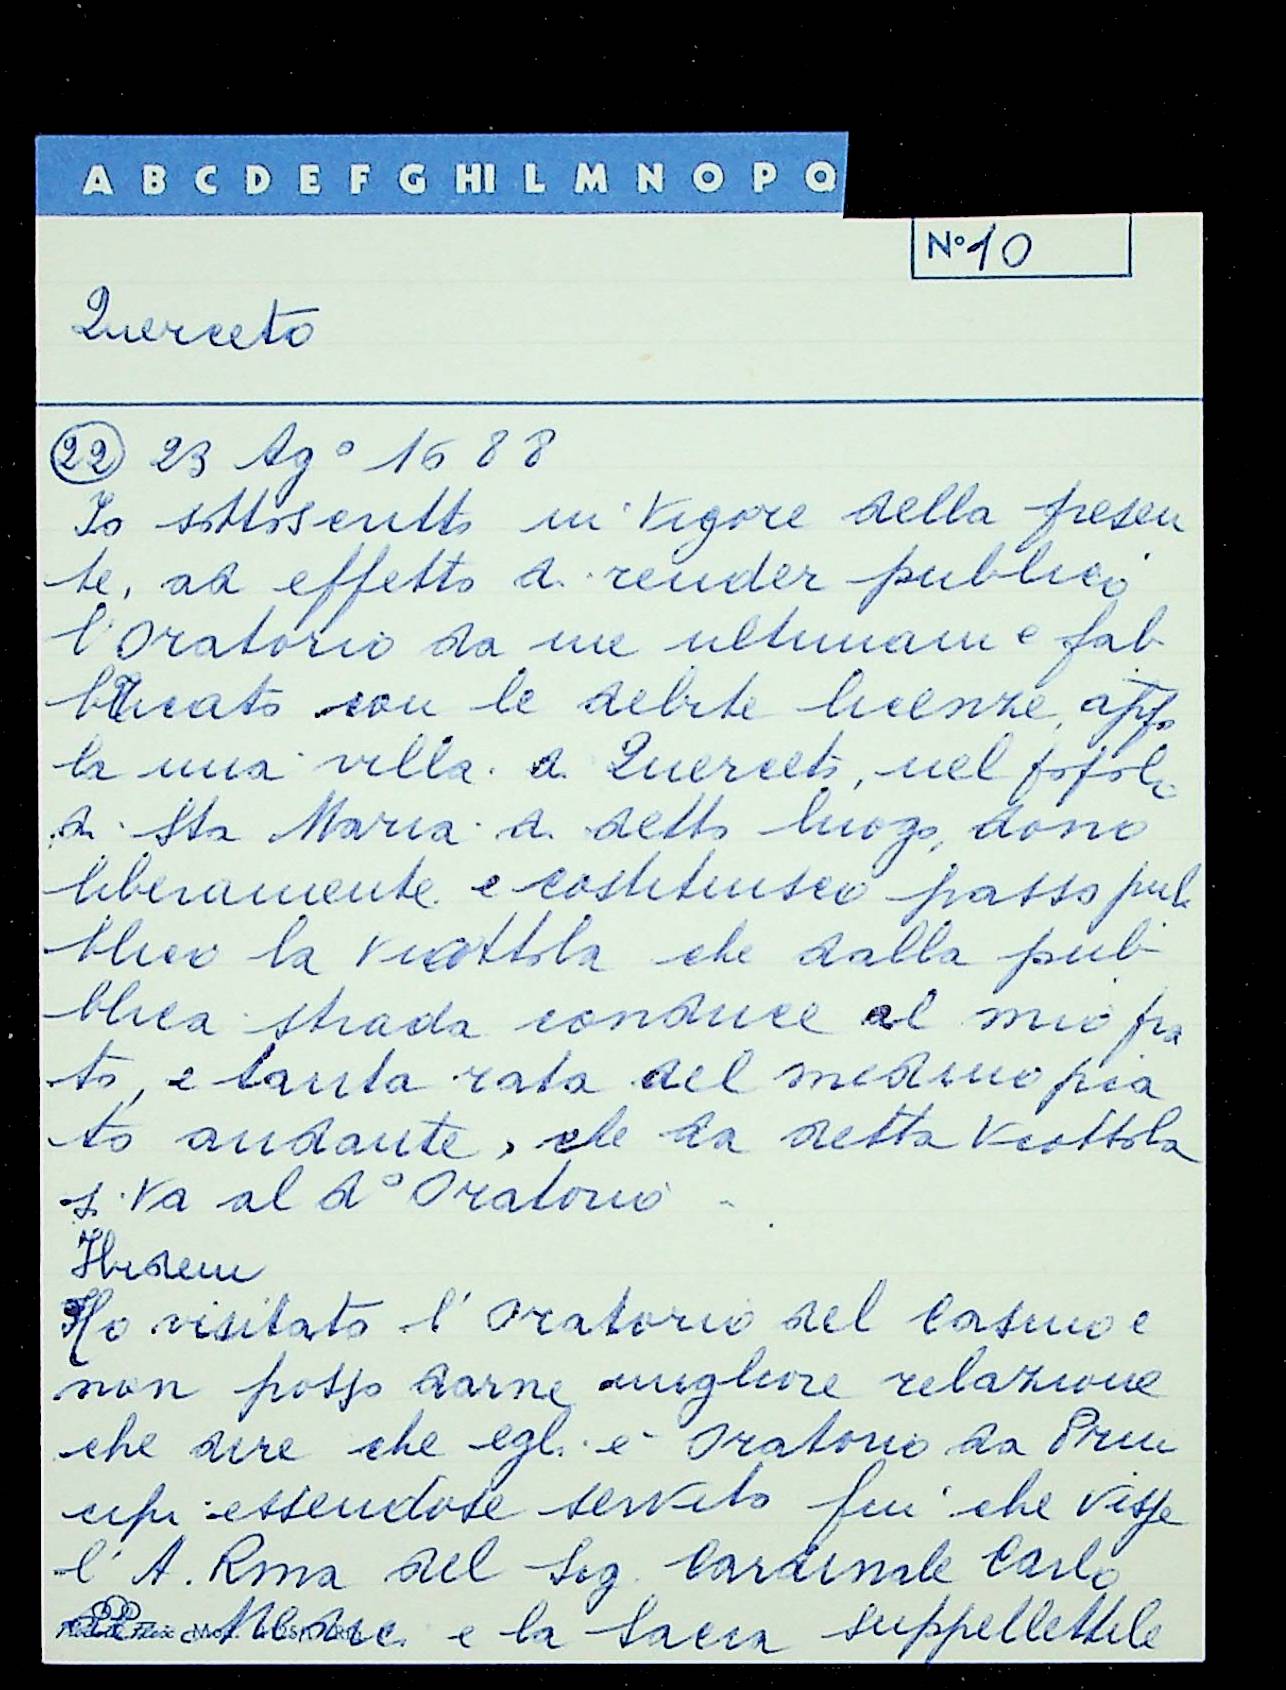 A B C D E F G HI L M N O P Q
N° 10
Querceto
22 23 Ag° 1688
Io sottoscritto in vigore della presen
te, ad effetto di render publico
l'oratorio da me ultimam e fab
bricato con le debite licenze, app.
la mia villa di Querceto, nel popolo
di Sta Maria di detto luogo, dono
liberamente e costituisco passo pub
blico la viottola che dalla pub
blica strada conduce al mio pra
to, e tanta rata del medmo pra
to andante, che da detta viottola
si va al d° Oratorio
Ibidem
Ho visitato l'oratorio del Casino e
non posso darne migliore relazione
che dire che egli e' oratorio da Prin
cipi essendose servito fin che visse
l'A. Rma del Sig. Cardinale Carlo
e la Sacra suppellettile